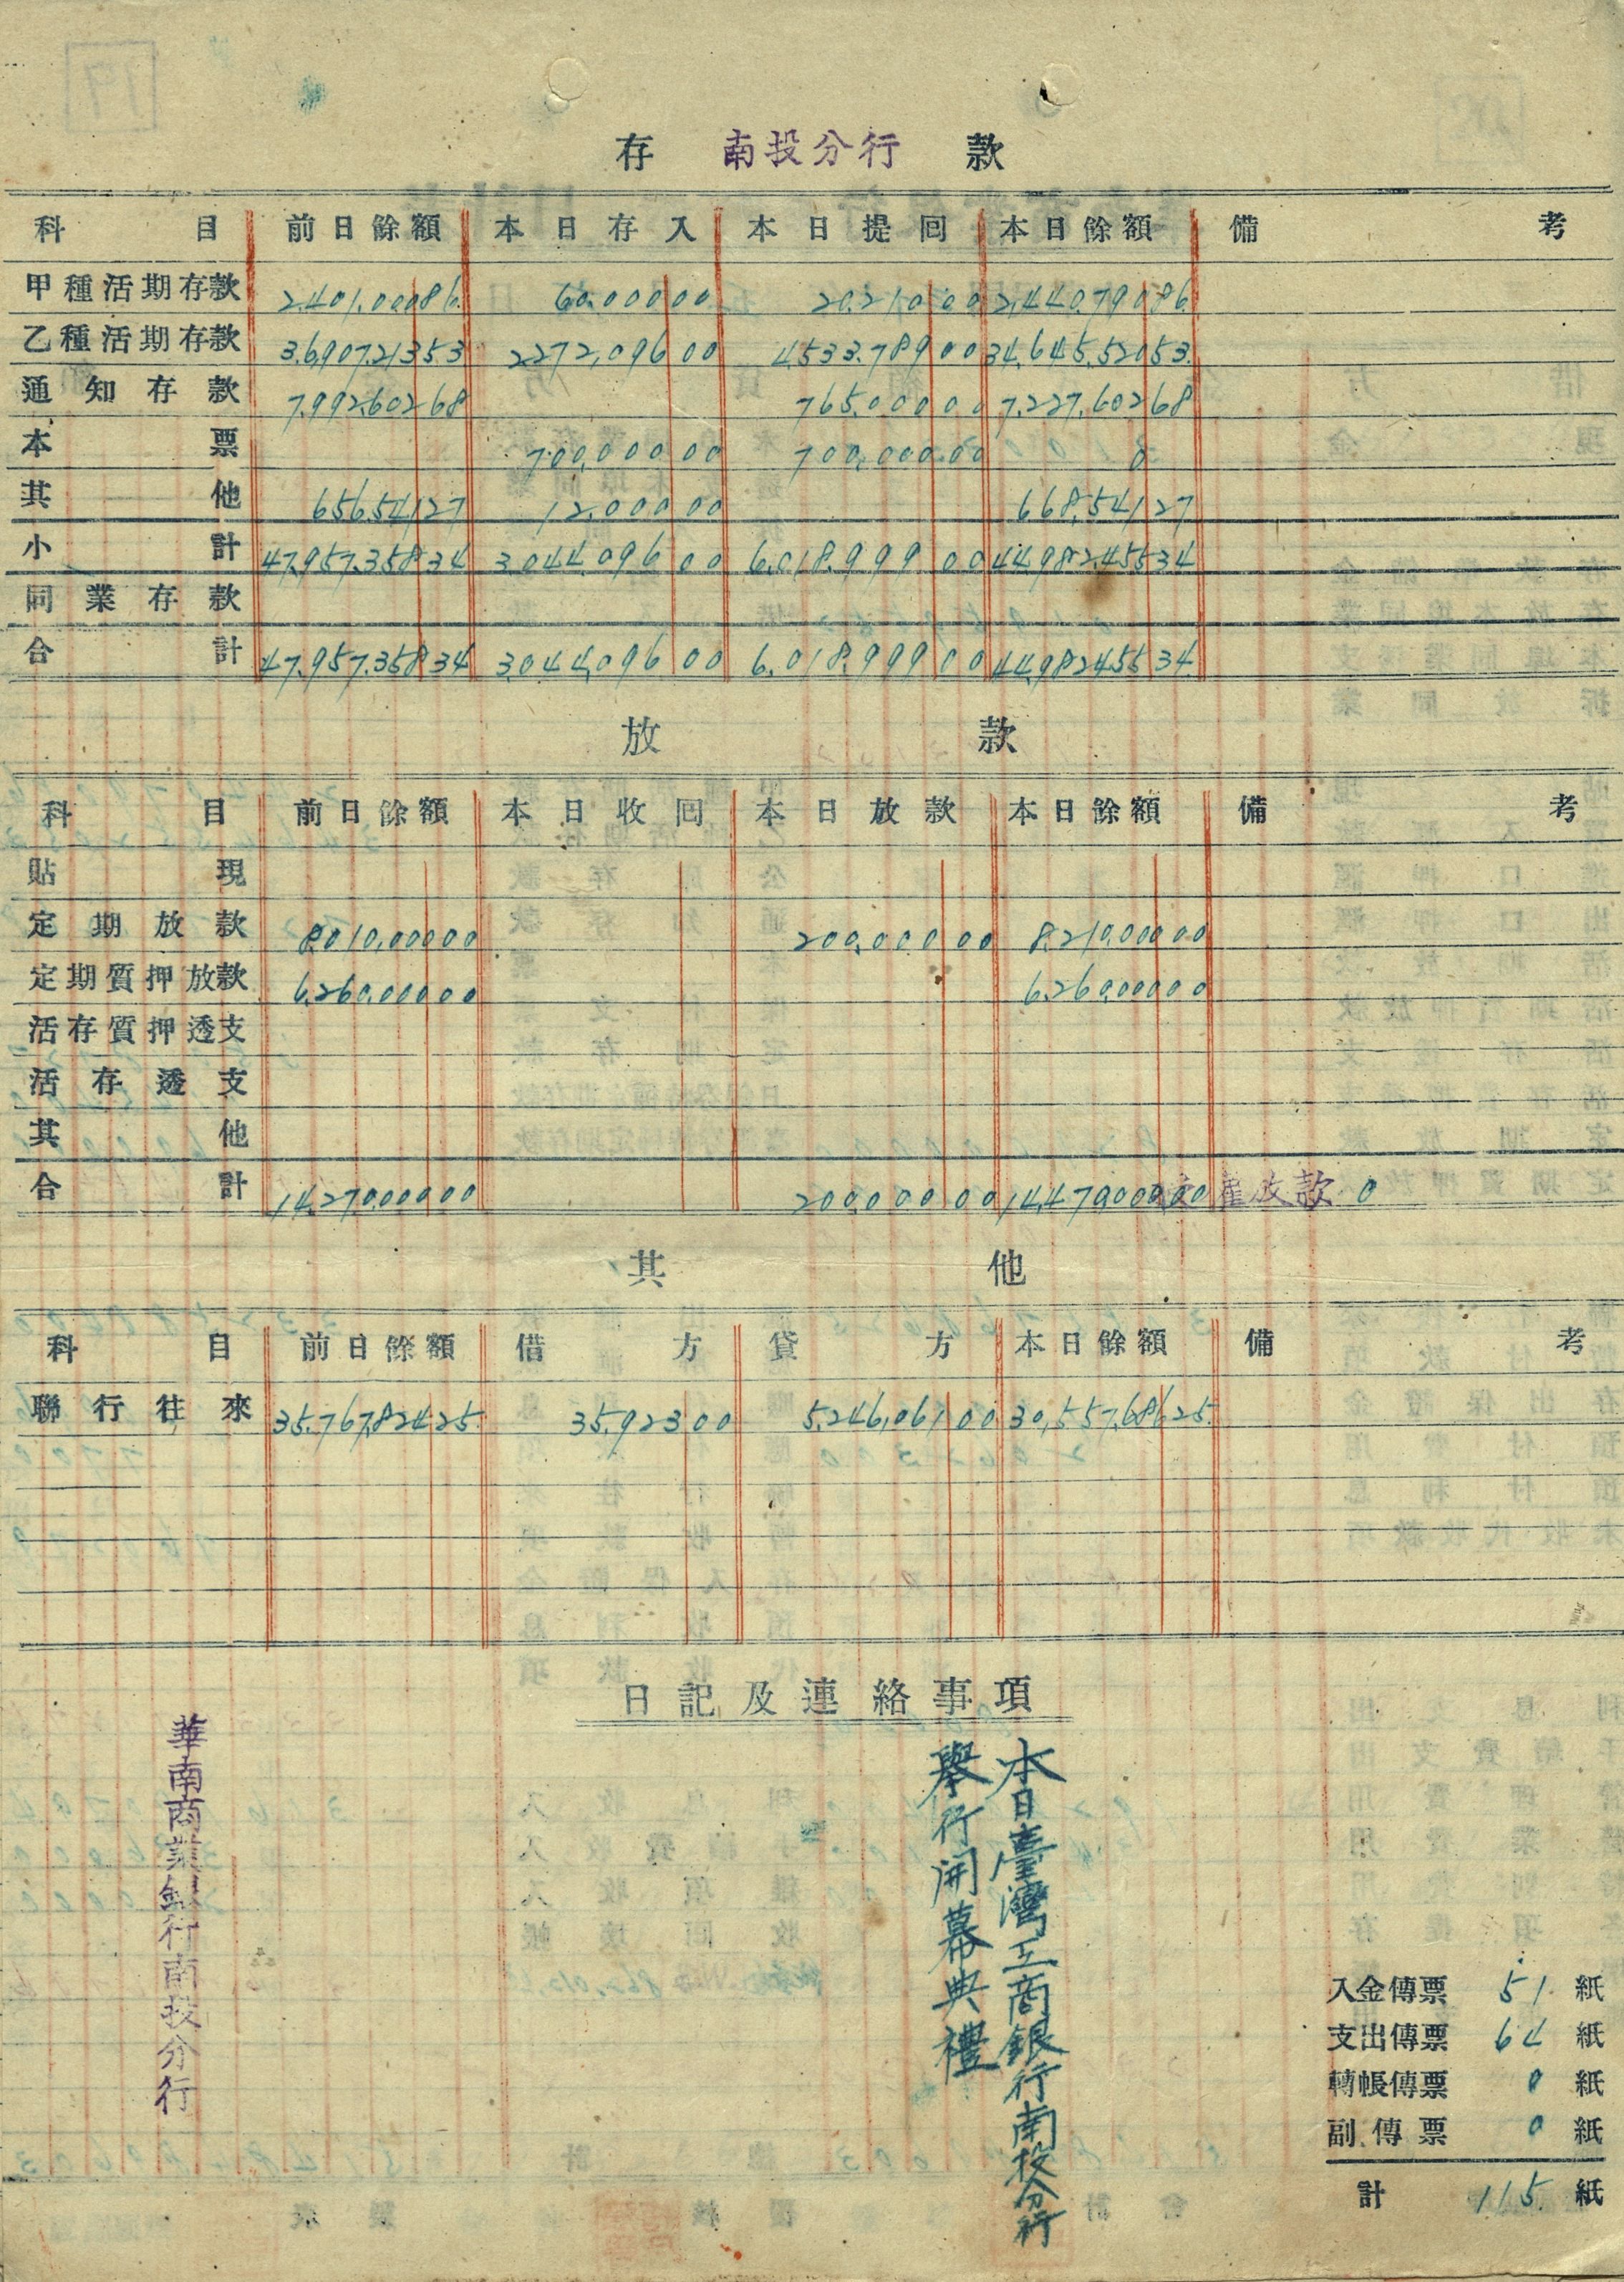 存 南投分行 款
科目 前日餘額 本日存入 本日提回 本日餘額 備考
甲種活期存款 2,401,000 86 60,000 00 20,210 00 2,440,790 86
乙種活期存款 36,907,213 53 2,272,096 00 4,533,789 00 34,645,520 53
通知存款 7,992,602 68 765,000 00 7,227,602 68
本票 700,000 00 700,000 00 0
其他 656,541 27 12,000 00 668,541 27
小計 47,957,358 34 3,044,096 00 6,018,999 00 44,982,455 34
同業存款
合計 47,957,358 34 3,044,096 00 6,018,999 00 44,982,455 34
放款
科目 前日餘額 本日收回 本日放款 本日餘額 備考
貼現
定期放款 8,010,000 00 200,000 00 8,210,000 00
定期質押放款 6,260,000 00 6,260,000 00
活存質押透支
活存透支
其他
合計 14,270,000 00 200,000 00 14,470,000 00 催放款 0
其他
科目 前日餘額 借方 貸方 本日餘額 備考
聯行往來 35,767,824 25 35,923 00 5,246,061 00 30,557,686 25
日記及連絡事項
本日臺灣工商銀行南投分行
舉行開幕典禮
華南商業銀行南投分行
入金傳票 51 紙
支出傳票 64 紙
轉帳傳票 0 紙
副傳票 0 紙
計 115 紙